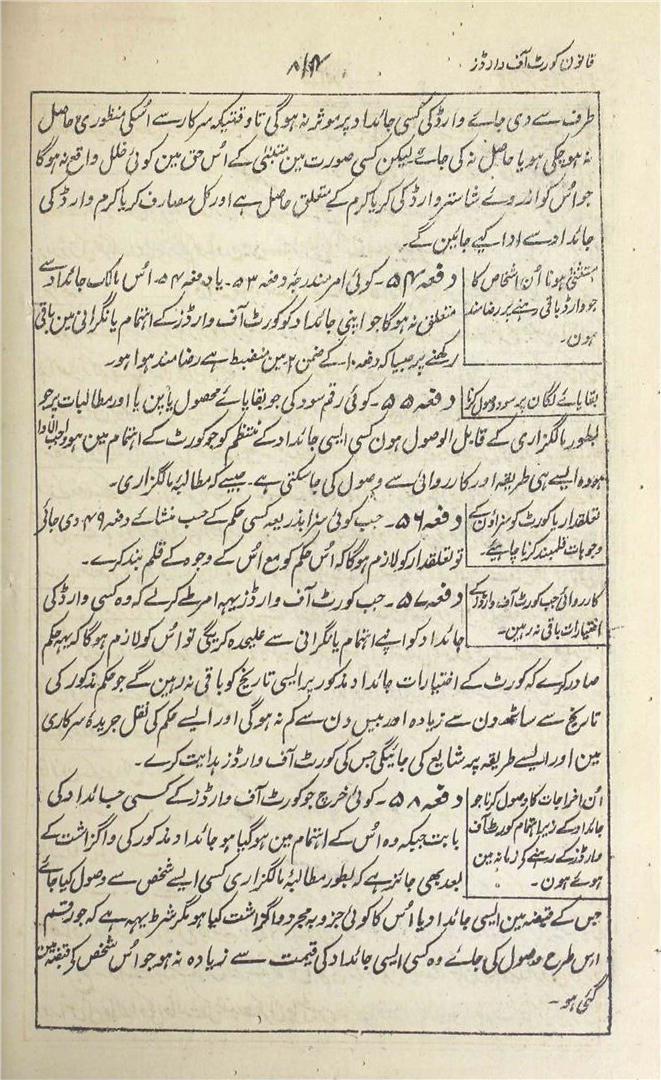 قانون کورٹ آف وارڈز
طرف سے دی جاے وارڈ کی کسی جائداد پر موثر نہ ہوگی تاوقتیکہ سرکار سے اُسکی منظوری حاصل
نہ ہوچکی ہو یا حاصل نہ کی جاے لیکن کسی صورت مین متبنیٰ کے اُس حق مین کوئی خلل واقع نہ ہوگا
جو اُس کو ازروے شاستر وارڈ کی کریا کرم کے متعلق حاصل ہے اور کل مصارف کریا کرم وارڈ کی
جائداد سے ادا کیے جاین گے۔
مستثنیٰ ہونا اُن اشخاص کا
جو وارڈ باقی رہنے پر رضامند
ہون۔
دفعہ ۵۴۔ کوئی امر مندرجہ دفعہ ۵۳۔ یا دفعہ ۵۴۔ اُس مالک جائداد سے
متعلق نہ ہوگا جو اپنی جائداد کو کورٹ آف وارڈز کے اہتمام یا نگرانی مین باقی
رکھنے پر جیسا کہ دفعہ ۱۰ کے ضمن ۲ مین منضبط ہے رضامند ہوا ہو۔
بقایاے لگان پر سود وصول کرنا
دفعہ ۵۵۔ کوئی رقم سود کی جو بقایاے محصول یا پن یا اور مطالبات پر جو
بطور مالگزاری کے قابل الوصول ہون کسی ایسی جائداد کے منتظم کو جو کورٹ کے اہتمام مین ہو واجب الادا
ہو وہ ایسے ہی طریقہ اور کارروائی سے وصول کی جاسکتی ہے۔ جیسے کہ مطالبۂ مالگزاری۔
تعلقدار یا کورٹ کو سزاؤن کے
وجوہات قلمبند کرنا چاہیے۔
دفعہ ۵۶۔ جب کوئی سزا بذریعہ کسی حکم کے حسب منشاے دفعہ ۴۹ دی جائی
تو تعلقدار کو لازم ہوگا کہ اُس حکم کو مع اُس کے وجوہ کے قلم بند کرے۔
کارروائی جب کورٹ آف وارڈز کے
اختیارات باقی نہ رہین۔
دفعہ ۵۷۔ جب کورٹ آف وارڈز یہہ امر طے کرلے کہ وہ کسی وارڈ کی
جائداد کو اپنے اہتمام یا نگرانی سے علیحدہ کریگی تو اُس کو لازم ہوگا کہ یہہ حکم
صادر کرے کہ کورٹ کے اختیارات جائداد مذکور پر ایسی تاریخ کو باقی نہ رہین گے جو حکم مذکور کی
تاریخ سے ساٹھ دن سے زیادہ اور بیس دن سے کم نہ ہوگی اور ایسے حکم کی نقل جریدۂ سرکاری
مین اور ایسے طریقہ پر شایع کی جائیگی جس کی کورٹ آف وارڈز ہدایت کرے۔
اُن اخراجات کا وصول کرنا جو
جائداد کے زیر اہتمام کورٹ آف
وارڈز کے رہنے کے زمانہ مین
ہوے ہون۔
دفعہ ۵۸۔ کوئی خرچ جو کورٹ آف وارڈز کے کسی جائداد کی
بابت جبکہ وہ اُس کے اہتمام مین ہو گیا ہو جائداد مذکور کی واگزاشت کے
بعد بھی جائز ہے کہ بطور مطالبۂ مالگزاری کسی ایسے شخص سے وصول کیا جاے
جس کے قبضہ مین ایسی جائداد یا اُس کا کوئی جزو بہ مجرد واگزاشت کیا ہو مگر شرط یہہ ہے کہ جو رقم
اس طرح وصول کی جاے وہ کسی ایسی جائداد کی قیمت سے زیادہ نہ ہو جو اُس شخص کے قبضہ مین
گئی ہو۔